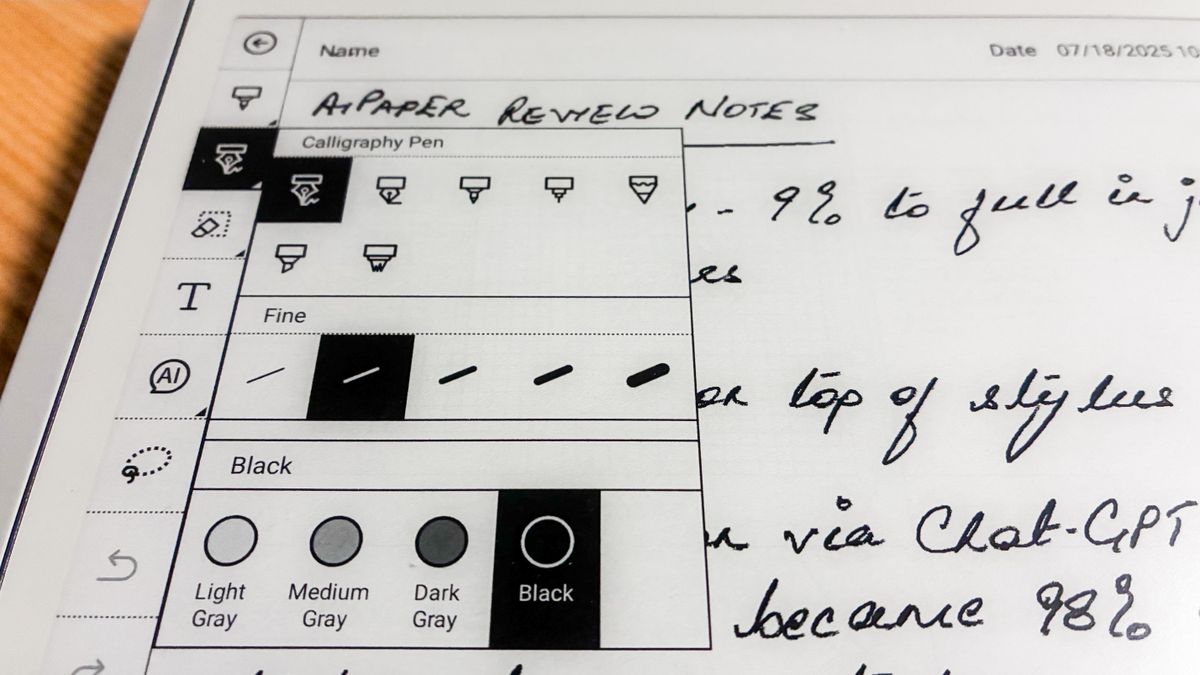 Name
Date 07/18/2025 10
AIPAPER REVIEW NOTES
Calligraphy Pen
- 9% to full in j
es
Fine
T
AI
on top of stylus
Black
via Chat-GPT
Light Gray
Medium Gray
Dark Gray
Black
became 98%